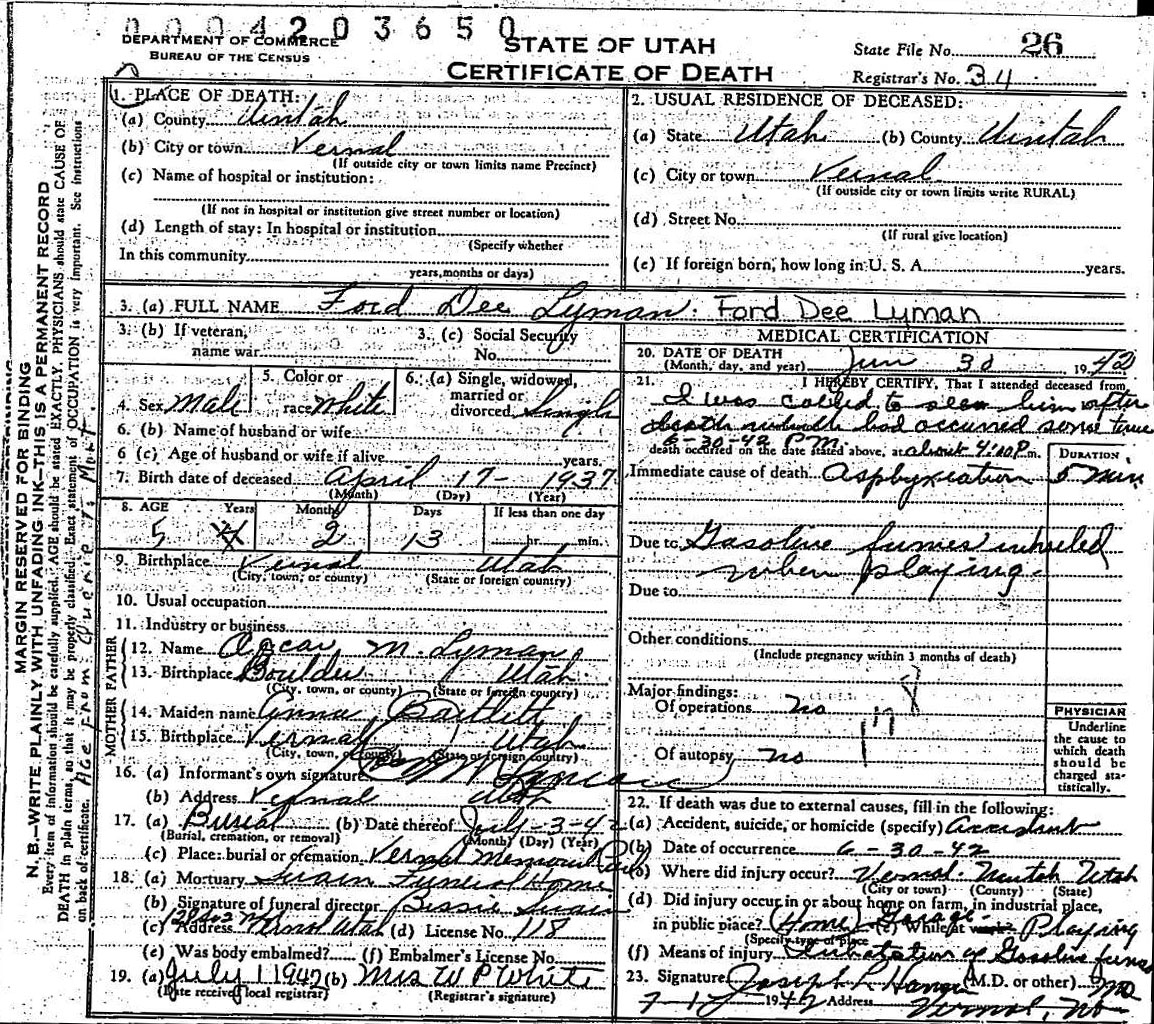 0004203650
DEPARTMENT OF COMMERCE
BUREAU OF THE CENSUS
STATE OF UTAH
CERTIFICATE OF DEATH
State File No. 26
Registrar's No. 34
MARGIN RESERVED FOR BINDING
N. B.—WRITE PLAINLY WITH UNFADING INK—THIS IS A PERMANENT RECORD
Every item of information should be carefully supplied. AGE should be stated EXACTLY. PHYSICIANS should state CAUSE OF
DEATH in plain terms, so that it may be properly classified. Exact statement of OCCUPATION is very important. See instructions
on back of certificate. Age from
1. PLACE OF DEATH:
(a) County Uintah
(b) City or town Vernal
(If outside city or town limits name Precinct)
(c) Name of hospital or institution:
(If not in hospital or institution give street number or location)
(d) Length of stay: In hospital or institution
(Specify whether
In this community
years, months or days)
2. USUAL RESIDENCE OF DECEASED:
(a) State Utah (b) County Uintah
(c) City or town Vernal
(If outside city or town limits write RURAL)
(d) Street No.
(If rural give location)
(e) If foreign born, how long in U. S. A. years.
3. (a) FULL NAME Ford Dee Lyman. Ford Dee Lyman
3. (b) If veteran,
name war
3. (c) Social Security
No.
4. Sex Male
5. Color or
race White
6. (a) Single, widowed,
married or
divorced, Single
6. (b) Name of husband or wife
6 (c) Age of husband or wife if alive years.
7. Birth date of deceased April 17- 1937
(Month) (Day) (Year)
8. AGE Years Months Days If less than one day
5 4 2 13 hr. min.
9. Birthplace Vernal Utah
(City, town, or county) (State or foreign country)
10. Usual occupation
11. Industry or business
FATHER
12. Name Oscar M. Lyman
13. Birthplace Boulder Utah
(City, town, or county) (State or foreign country)
MOTHER
14. Maiden name Anna Bartlett
15. Birthplace Vernal Utah
(City, town, or county) (State or foreign country)
16. (a) Informant's own signature O M Lyman
(b) Address Vernal Utah
17. (a) Burial (b) Date thereof July-3-42
(Burial, cremation, or removal) (Month) (Day) (Year)
(c) Place: burial or cremation Vernal Memorial Park
18. (a) Mortuary Swain Funeral Home
(b) Signature of funeral director Bessie Swain
(c) Address Vernal Utah (d) License No. 118
(e) Was body embalmed? (f) Embalmer's License No.
19. (a) July 1 1942 (b) Mrs W P White
(Date received local registrar) (Registrar's signature)
MEDICAL CERTIFICATION
20. DATE OF DEATH
(Month, day, and year) Jun 30 1942
21. I HEREBY CERTIFY, That I attended deceased from
I was called to seen him after
death which had occurred some time
6-30-42 P.M.
death occurred on the date stated above, at about 4:00 P. m.
DURATION
Immediate cause of death Asphyxiation 5 min
Due to Gasoline fumes inhaled
when playing.
Due to
Other conditions
(Include pregnancy within 3 months of death)
Major findings:
Of operations no
178
Of autopsy no
PHYSICIAN
Underline
the cause to
which death
should be
charged sta-
tistically.
22. If death was due to external causes, fill in the following:
(a) Accident, suicide, or homicide (specify) Accident
(b) Date of occurrence 6-30-42
(c) Where did injury occur? Vernal Uintah Utah
(City or town) (County) (State)
(d) Did injury occur in or about home on farm, in industrial place,
in public place? (Home) Garage (e) While at work? Playing
(Specify type of place
(f) Means of injury Inhalation of Gasoline fumes
23. Signature Joseph L. Hanger (M.D. or other) MD
1942 Address Vernal, Ut